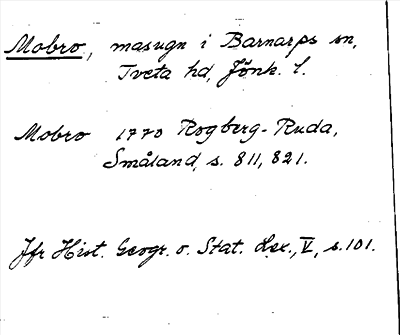 Mobro, masugn i Barnarps sn,
Tveta hd, Jönk. l.
Mobro 1770 Rogberg-Ruda,
Småland, s. 811, 821.
Jfr Hist. Geogr. o. Stat. Lex., V, s. 101.